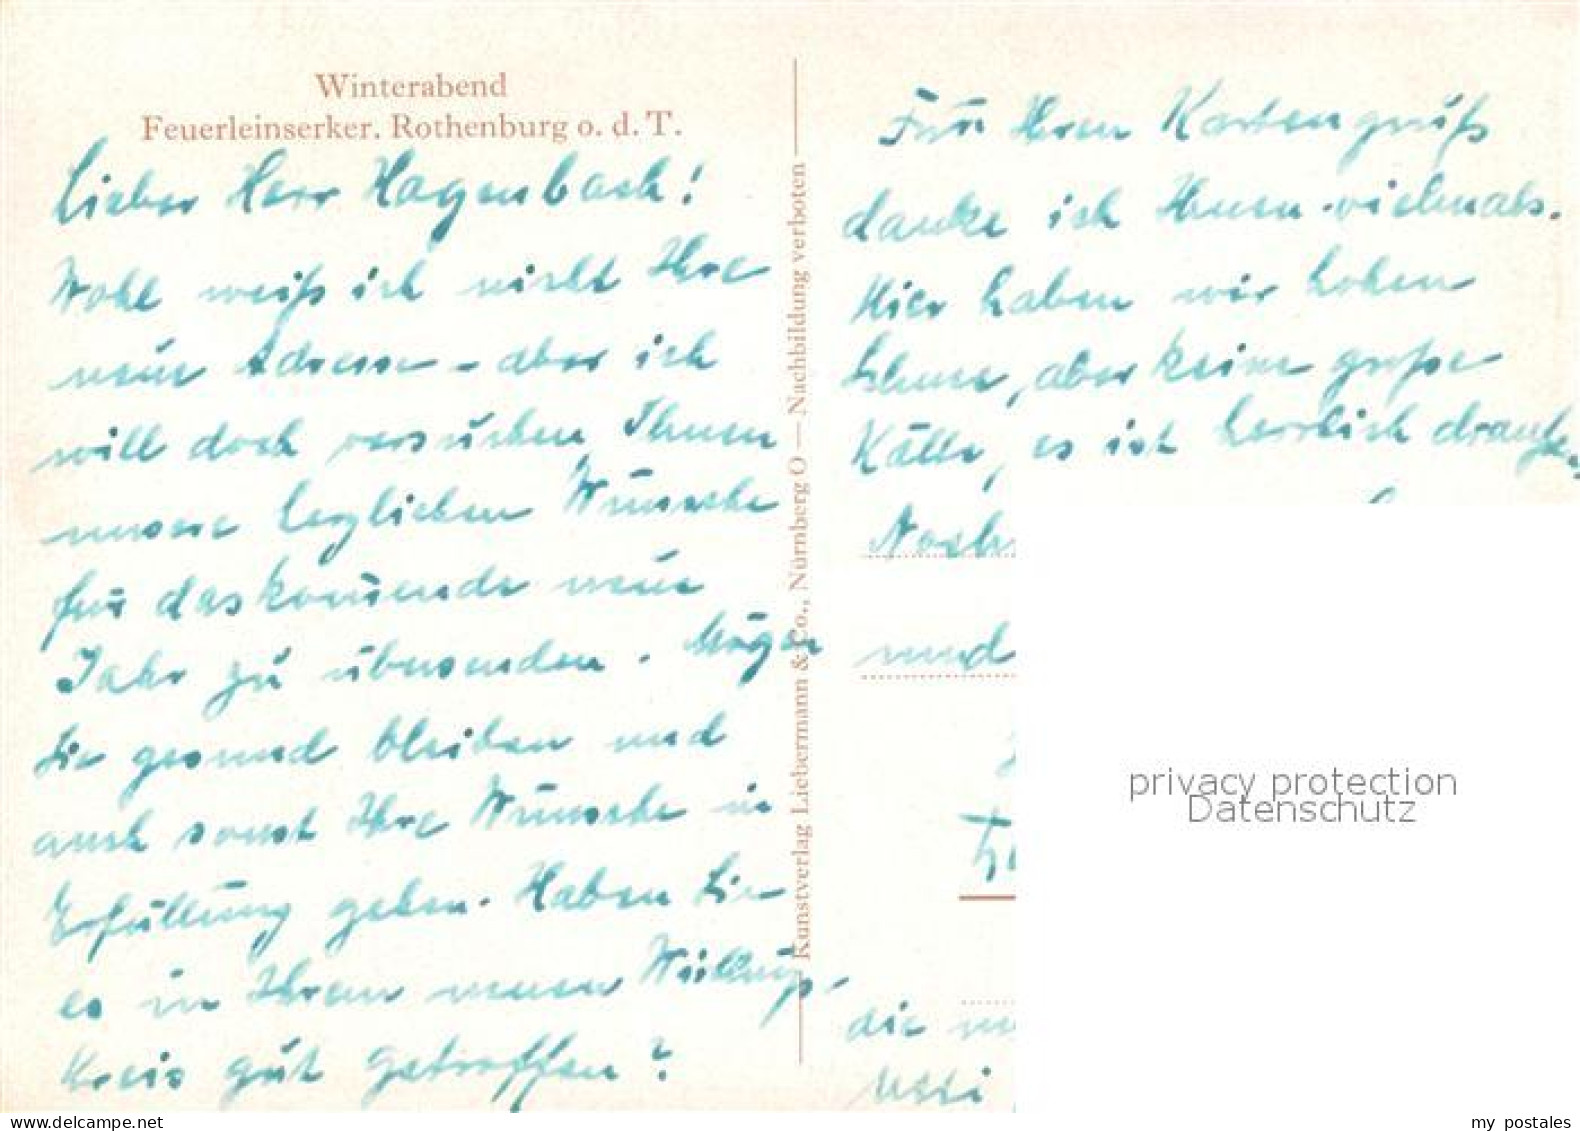 Winterabend
Feuerleinserker. Rothenburg o. d. T.
Lieber Herr Hagenbach!
Wohl weiß ich nicht Ihre
neue Adresse - aber ich
will doch versuchen, Ihnen
unsere herzlichen Wünsche
für das kommende neue
Jahr zu übersenden. Mögen
Sie gesund bleiben und
auch sonst Ihre Wünsche in
Erfüllung gehen. Haben Sie
es in Ihrem neuen Wirkungs-
kreis gut getroffen?
Kunstverlag Liebermann & Co., Nürnberg O — Nachbildung verboten
Für Ihren Kartengruß
danke ich Ihnen vielmals.
Hier haben wir hohen
Schnee, aber keine große
Kälte, es ist herrlich draußen.
Noch
und
die
privacy protection
Datenschutz
my postales